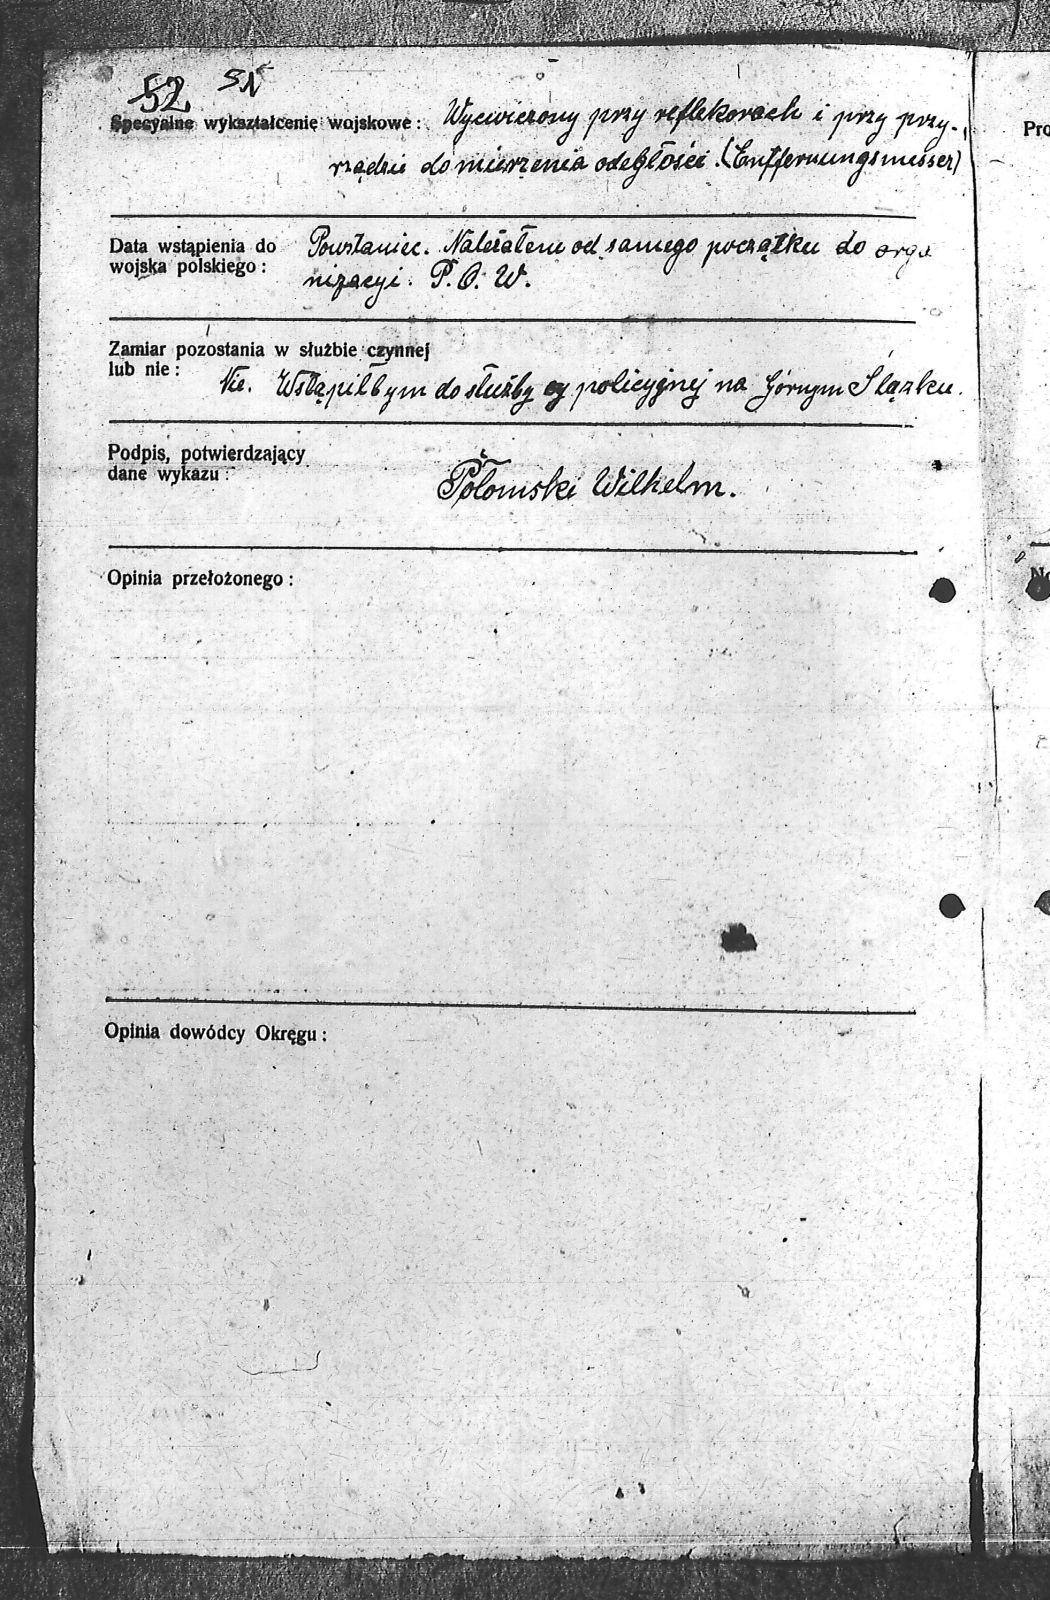 52 51
Specyalne wykształcenie wojskowe: Wyćwiczony przy reflekorach i przy przy-
rządzie do mierzenia odegłości. (Entffernungsmesser)
Data wstąpienia do Powstaniec. Należałem od samego początku do orga
wojska polskiego: nizacyi. P. O. W.
Zamiar pozostania w służbie czynnej
lub nie: Nie. Wstąpiłbym do służby policyjnej na Górnym Slązku.
Podpis, potwierdzający
dane wykazu: Połomski Wilhelm.
Opinia przełożonego:
Opinia dowódcy Okręgu:
Pro
No